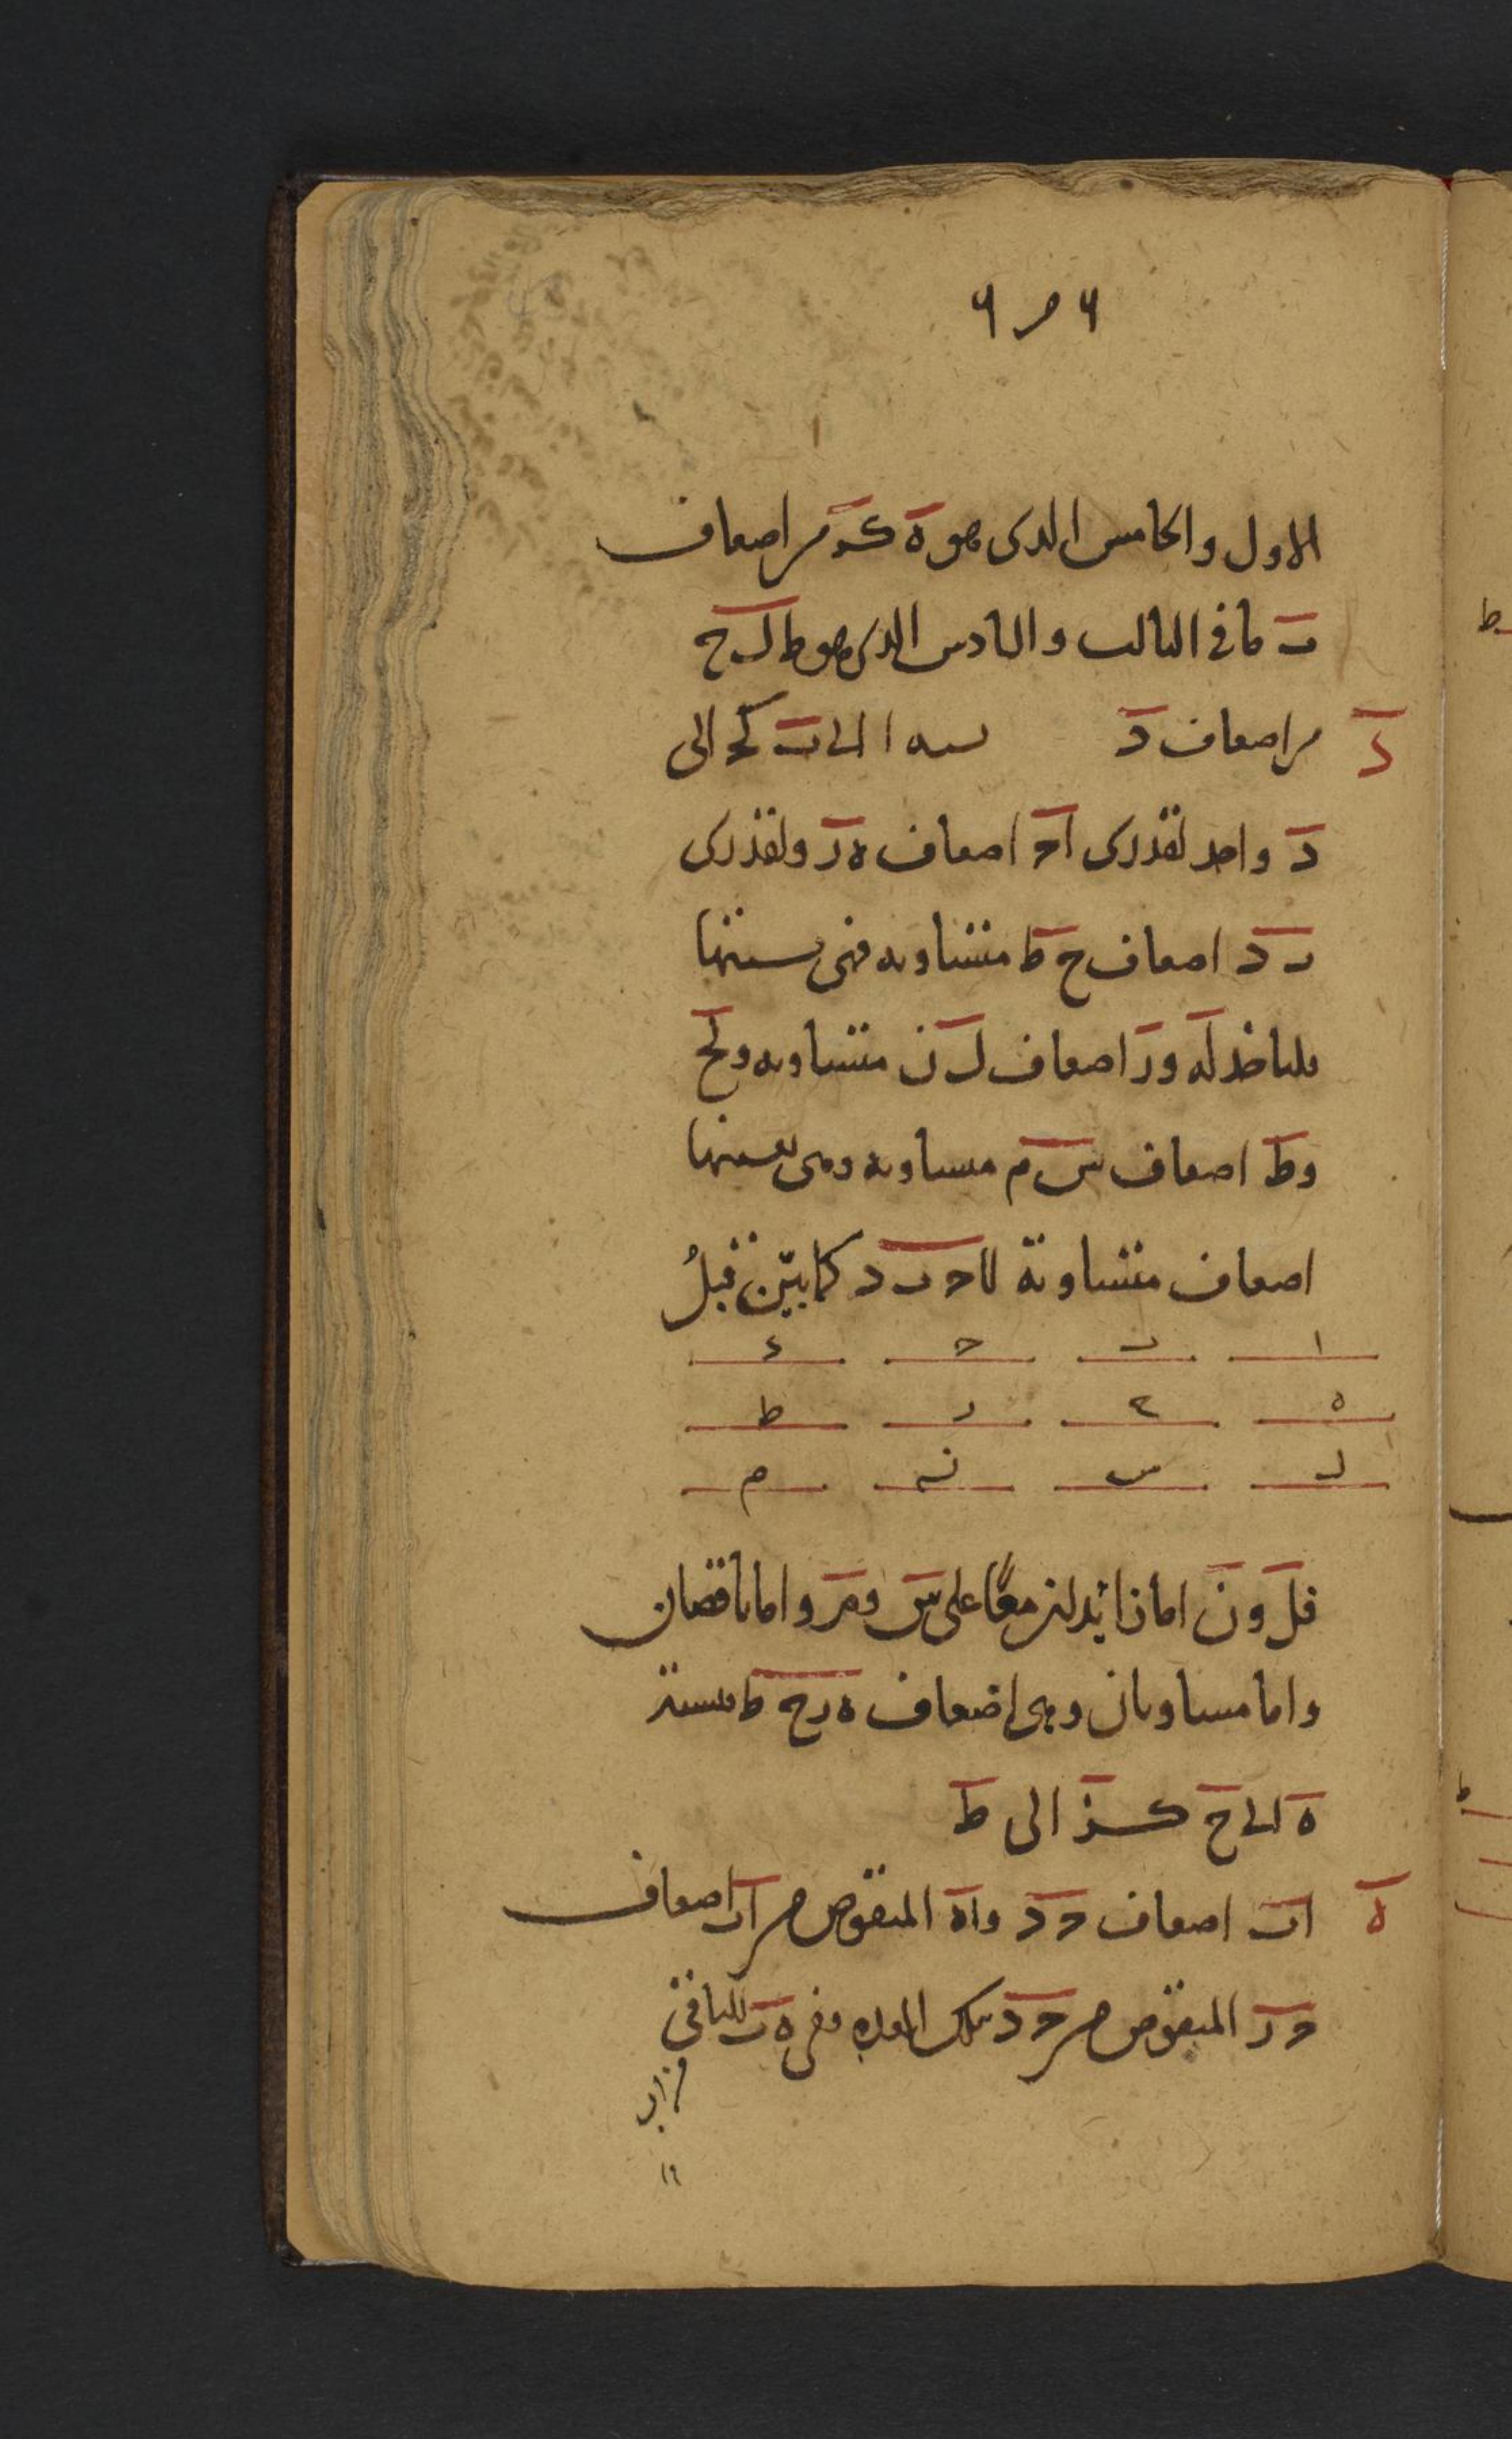 الاول والخامس الذى هو ه ك من اضعاف
ب ما فى الثالث والسادس الذى هو ط ل ح
د من اضعاف د نسبه ا الى ب كح الى
د واحد لقدرى ا ح اضعاف ه ر ولقدرى
ب د اضعاف ح ط متساويه فهى نسبتها
فلناخذ له ور اضعاف ل ن متساويه ولح
وط اضعاف س م متساويه وهى بعينها
اضعاف متساوية لا ح ب د كما بين قبل
ا ب ح د
ه ح ر ط
ل س ن م
فل ون اما زائدان معًا على س وم واما ناقصان
واما مساويان وهى اضعاف ه ر ح ط فنسبة
ه الى ح كر الى ط
ه اب اضعاف ح د واه المنقوص من اب اضعاف
ح ر المنقوص من ح د بتلك العده ففى ه ب الباقى